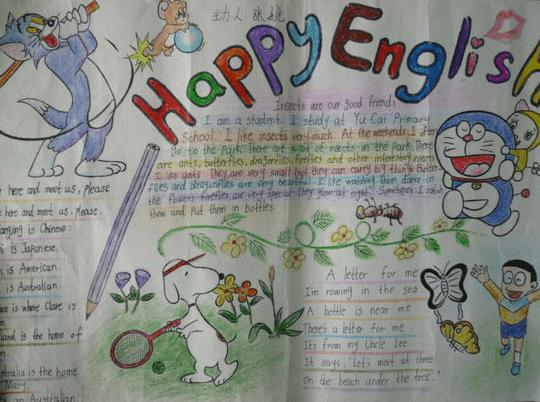 主力人:张
Happy English
Insects are our good friends
I am a student. I study at Yu Cai Primary
School. I like insects very much. At the weekends, I often
go to the park. There are a lot of insects in the park. There
are ants, butterflies, dragonflies, fireflies and other interesting insects.
I like ants. They are very small but they can curry big things. Butter-
flies and dragonflies are very beautiful. I like watching them dance in
the flowers. fireflies are very special. They glow at night. Sometimes, I catch
them and put them in bottles.
here and meet us, please
here and meet us, please.
is Chinese.
is Japanese.
is American.
is Australian.
where Clare is
land is the home of
is the home
Mary.
an Australian
A letter for me
I'm rowing in the sea
A bottle is near me
There's a letter for me
It's from my Uncle Lee
It says, "Let's meet at three
on the beach under the tree."